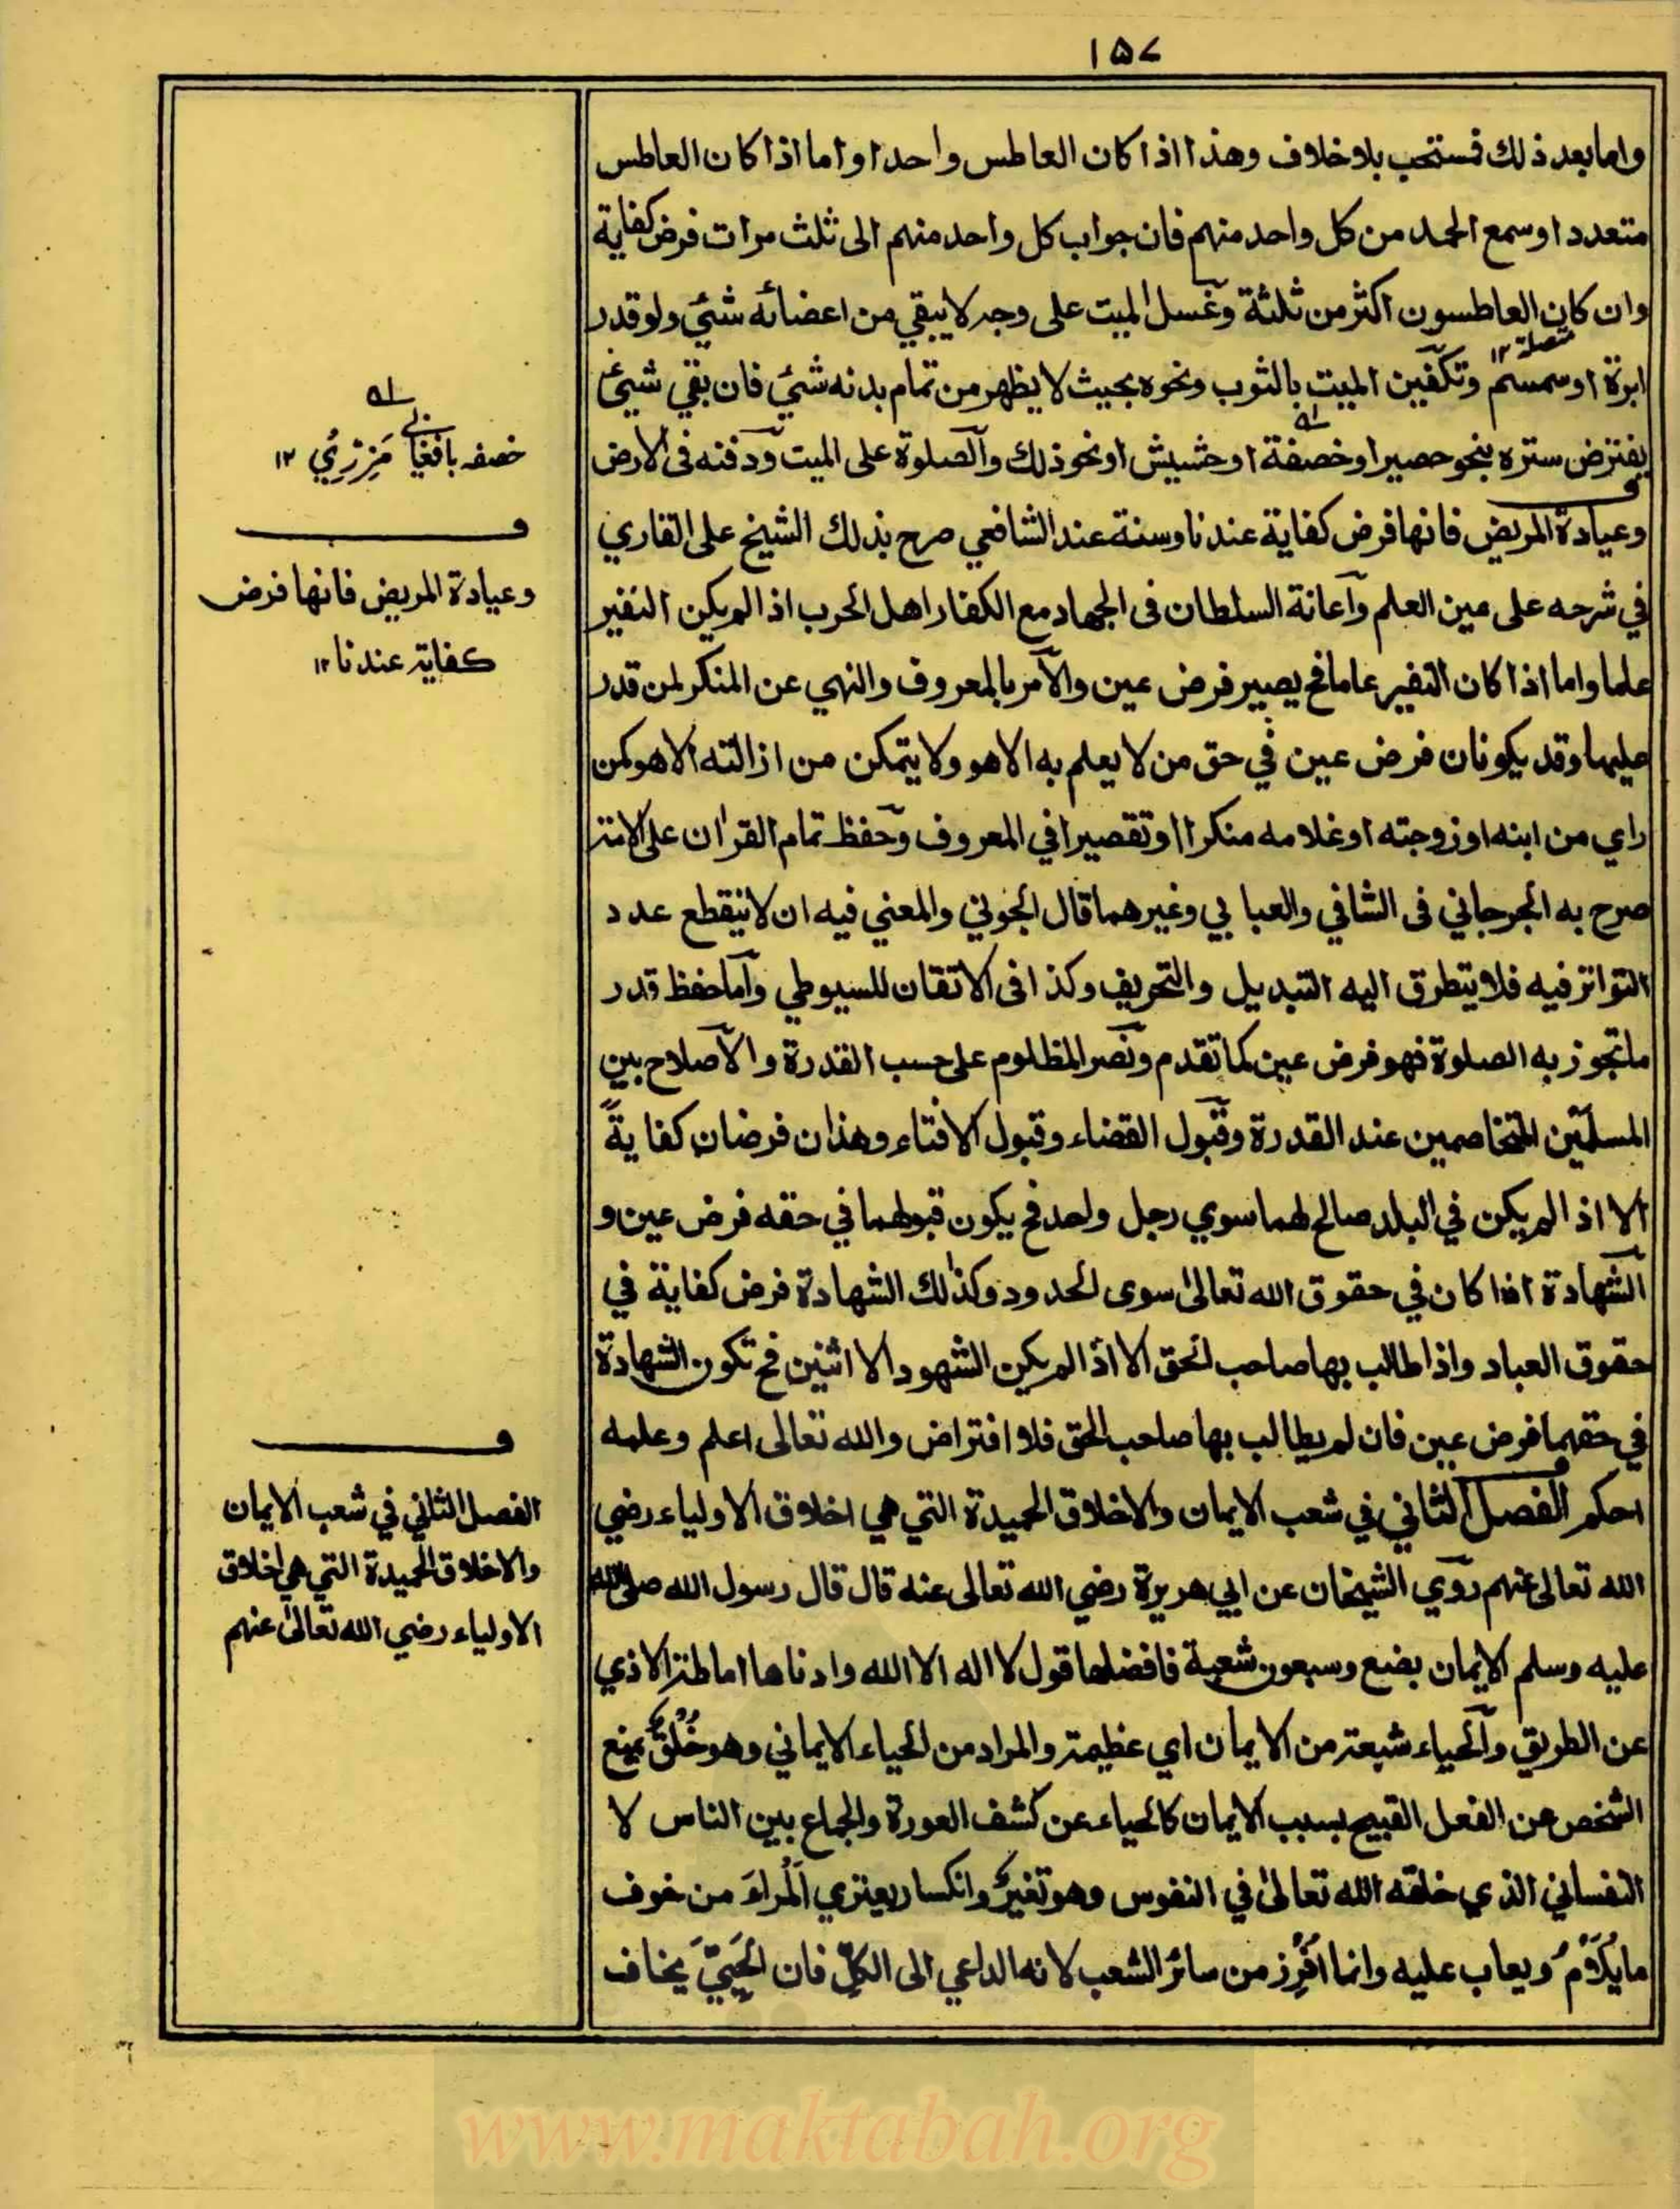 ١٥٧
واما بعد ذلك فستحب بلا خلاف وهذا اذا كان العاطس واحدا واما اذا كان العاطس
متعددا وسمع الحمد من كل واحد منهم فان جواب كل واحد منهم الى ثلث مرات فرض كفاية
وان كان العاطسون اكثر من ثلثة وغسل الميت على وجه لا يبقي من اعضائه شئي ولو قدر
ابرة او سمسم وتكفين الميت بالثوب ونحوه بحيث لا يظهر من تمام بدنه شئي فان بقي شيئ
يفترض ستره بنحو حصير او خصفة او حشيش او نحو ذلك والصلوة على الميت ودفنه فى الارض
وعيادة المريض فانها فرض كفاية عندنا وسنة عند الشافعي صرح بذلك الشيخ على القاري
في شرحه على عين العلم واعانة السلطان فى الجهاد مع الكفار اهل الحرب اذا لم يكن النفير
عاما واما اذا كان النفير عاما فح يصير فرض عين والامر بالمعروف والنهي عن المنكر لمن قدر
عليهما وقد يكونان فرض عين في حق من لا يعلم به الا هو ولا يتمكن من ازالته الا هو كمن
راي من ابنه او زوجته او غلامه منكرا او تقصيرا في المعروف وحفظ تمام القران على الامة
صرح به الجرجاني فى الشافي والعبابي وغيرهما قال الجويني والمعني فيه ان لا ينقطع عدد
التواتر فيه فلا يتطرق اليه التبديل والتحريف وكذا فى الاتقان للسيوطي واما حفظ قدر
ما تجوز به الصلوة فهو فرض عين كما تقدم ونصر المظلوم على حسب القدرة والاصلاح بين
المسلمين المتخاصمين عند القدرة وقبول القضاء وقبول الافتاء وهذان فرضان كفايةً
الا اذا لم يكن في البلد صالح لهما سوي رجل واحد فح يكون قبولهما في حقه فرض عين و
الشهادة اذا كان في حقوق الله تعالى سوى الحدود وكذلك الشهادة فرض كفاية في
حقوق العباد واذا طالب بها صاحب الحق الا اذا لم يكن الشهود الا اثنين فح تكون الشهادة
في حقهما فرض عين فان لم يطالب بها صاحب الحق فلا افتراض والله تعالى اعلم وعلمه
احكم الفصل الثاني في شعب الايمان والاخلاق الحميدة التي هي اخلاق الاولياء رضي
الله تعالى عنهم روي الشيخان عن ابي هريرة رضي الله تعالى عنه قال قال رسول الله صلى الله
عليه وسلم الايمان بضع وسبعون شعبة فافضلها قول لا اله الا الله وادناها اماطة الاذي
عن الطريق والحياء شبعة من الايمان اي عظيمة والمراد من الحياء الايماني وهو خُلُقٌ يمنع
الشخص من الفعل القبيح بسبب الايمان كالحياء عن كشف العورة والجماع بين الناس لا
النفساني الذي خلقه الله تعالى في النفوس وهو تغيرٌ وانكسار يعتري المراءَ من خوف
ما يُلاَمُ ويعاب عليه وانما اُفْرِز من سائر الشعب لانه الداعي الى الكلِّ فان الحَيِيَّ يَخاف
خصفه بافغاني مَزْرِيُ ١٢
وعيادة المريض فانها فرض
كفاية عندنا ١٢
الفصل الثاني في شعب الايمان
والاخلاق الحميدة التي هي اخلاق
الاولياء رضي الله تعالى عنهم
www.maktabah.org